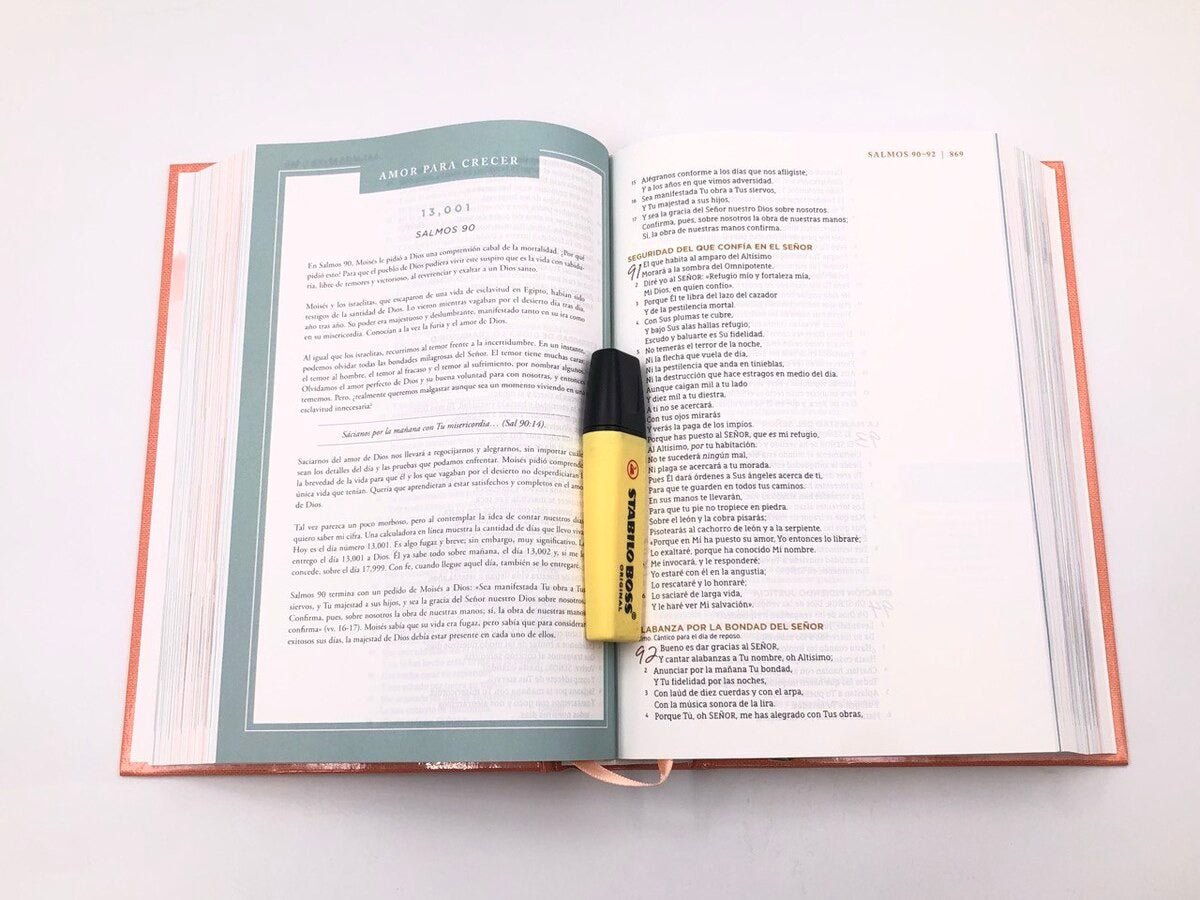 AMOR PARA CRECER
13,001
SALMOS 90
En Salmos 90, Moisés le pidió a Dios una comprensión cabal de la mortalidad. ¡Por qué
pidió esto! Para que el pueblo de Dios pudiera vivir este suspiro que es la vida con sabidu-
ría, libre de temores y victorioso, al reverenciar y exaltar a un Dios santo.
Moisés y los israelitas, que escaparon de una vida de esclavitud en Egipto, habían sido
testigos de la santidad de Dios. Lo vieron mientras vagaban por el desierto día tras día,
año tras año. Su poder era majestuoso y deslumbrante, manifestado tanto en su ira como
en su misericordia. Conocían a la vez la furia y el amor de Dios.
Al igual que los israelitas, recurrimos al temor frente a la incertidumbre. En un instante,
podemos olvidar todas las bondades milagrosas del Señor. El temor tiene muchas caras:
el temor al hombre, el temor al fracaso y el temor al sufrimiento, por nombrar algunos.
Olvidamos el amor perfecto de Dios y su buena voluntad para con nosotras, y entonces
tememos. Pero, ¿realmente queremos malgastar aunque sea un momento viviendo en una
esclavitud innecesaria?
Sácianos por la mañana con Tu misericordia… (Sal 90:14).
Saciarnos del amor de Dios nos llevará a regocijarnos y alegrarnos, sin importar cuáles
sean los detalles del día y las pruebas que podamos enfrentar. Moisés pidió comprender
la brevedad de la vida para que él y los que vagaban por el desierto no desperdiciaran la
única vida que tenían. Quería que aprendieran a estar satisfechos y completos en el amor
de Dios.
Tal vez parezca un poco morboso, pero al contemplar la idea de contar nuestros días
quiero saber mi cifra. Una calculadora en línea muestra la cantidad de días que llevo viva.
Hoy es el día número 13,001. Es algo fugaz y breve; sin embargo, muy significativo. Le
entrego el día 13,001 a Dios. Él ya sabe todo sobre mañana, el día 13,002 y, si me lo
concede, sobre el día 17,999. Con fe, cuando llegue aquel día, también se lo entregaré.
Salmos 90 termina con un pedido de Moisés a Dios: «Sea manifestada Tu obra a Tus
siervos, y Tu majestad a sus hijos, y sea la gracia del Señor nuestro Dios sobre nosotros.
Confirma, pues, sobre nosotros la obra de nuestras manos; sí, la obra de nuestras manos
confirma» (vv. 16-17). Moisés sabía que su vida era fugaz, pero sabía que para considerar
exitosos sus días, la majestad de Dios debía estar presente en cada uno de ellos.
SALMOS 90–92 | 869
15 Alégranos conforme a los días que nos afligiste,
Y a los años en que vimos adversidad.
16 Sea manifestada Tu obra a Tus siervos,
Y Tu majestad a sus hijos,
17 Y sea la gracia del Señor nuestro Dios sobre nosotros.
Confirma, pues, sobre nosotros la obra de nuestras manos;
Sí, la obra de nuestras manos confirma.
SEGURIDAD DEL QUE CONFÍA EN EL SEÑOR
91 El que habita al amparo del Altísimo
Morará a la sombra del Omnipotente.
2 Diré yo al SEÑOR: «Refugio mío y fortaleza mía,
Mi Dios, en quien confío».
3 Porque Él te libra del lazo del cazador
Y de la pestilencia mortal.
4 Con Sus plumas te cubre,
Y bajo Sus alas hallas refugio;
Escudo y baluarte es Su fidelidad.
5 No temerás el terror de la noche,
Ni la flecha que vuela de día,
Ni la pestilencia que anda en tinieblas,
Ni la destrucción que hace estragos en medio del día.
Aunque caigan mil a tu lado
Y diez mil a tu diestra,
A ti no se acercará.
Con tus ojos mirarás
Y verás la paga de los impíos.
Porque has puesto al SEÑOR, que es mi refugio,
Al Altísimo, por tu habitación.
No te sucederá ningún mal,
Ni plaga se acercará a tu morada.
Pues Él dará órdenes a Sus ángeles acerca de ti,
Para que te guarden en todos tus caminos.
En sus manos te llevarán,
Para que tu pie no tropiece en piedra.
Sobre el león y la cobra pisarás;
Pisotearás al cachorro de león y a la serpiente.
«Porque en Mí ha puesto su amor, Yo entonces lo libraré;
Lo exaltaré, porque ha conocido Mi nombre.
Me invocará, y le responderé;
Yo estaré con él en la angustia;
Lo rescataré y lo honraré;
Lo saciaré de larga vida,
Y le haré ver Mi salvación».
LABANZA POR LA BONDAD DEL SEÑOR
Cántico para el día de reposo.
92 Bueno es dar gracias al SEÑOR,
Y cantar alabanzas a Tu nombre, oh Altísimo;
2 Anunciar por la mañana Tu bondad,
Y Tu fidelidad por las noches,
3 Con laúd de diez cuerdas y con el arpa,
Con la música sonora de la lira.
4 Porque Tú, oh SEÑOR, me has alegrado con Tus obras,
STABILO BOSS®
ORIGINAL